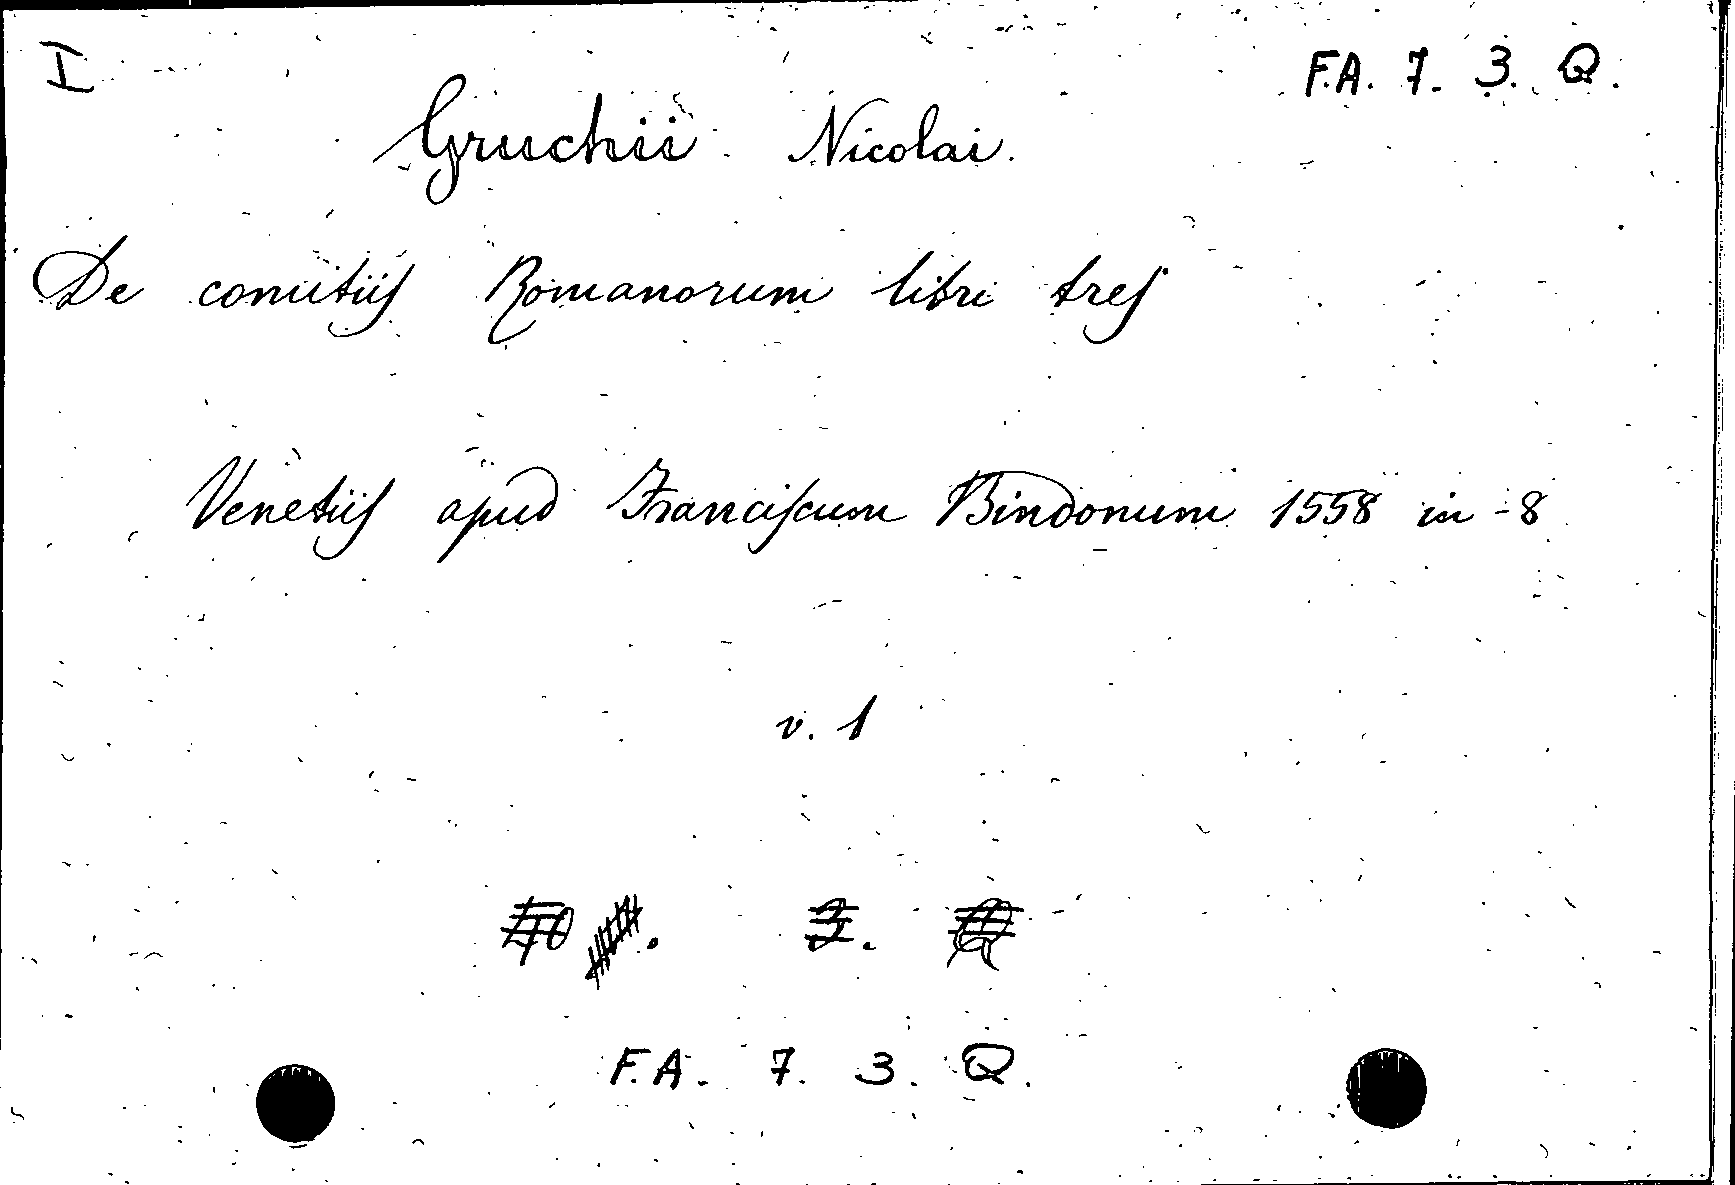 I
F.A. 7. 3. Q.
Gruchii Nicolai.
De comitiis Romanorum libri tres
Venetiis apud Franciscum Bindonum 1558 in-8
v. 1
3.
F.A. 7. 3. Q.